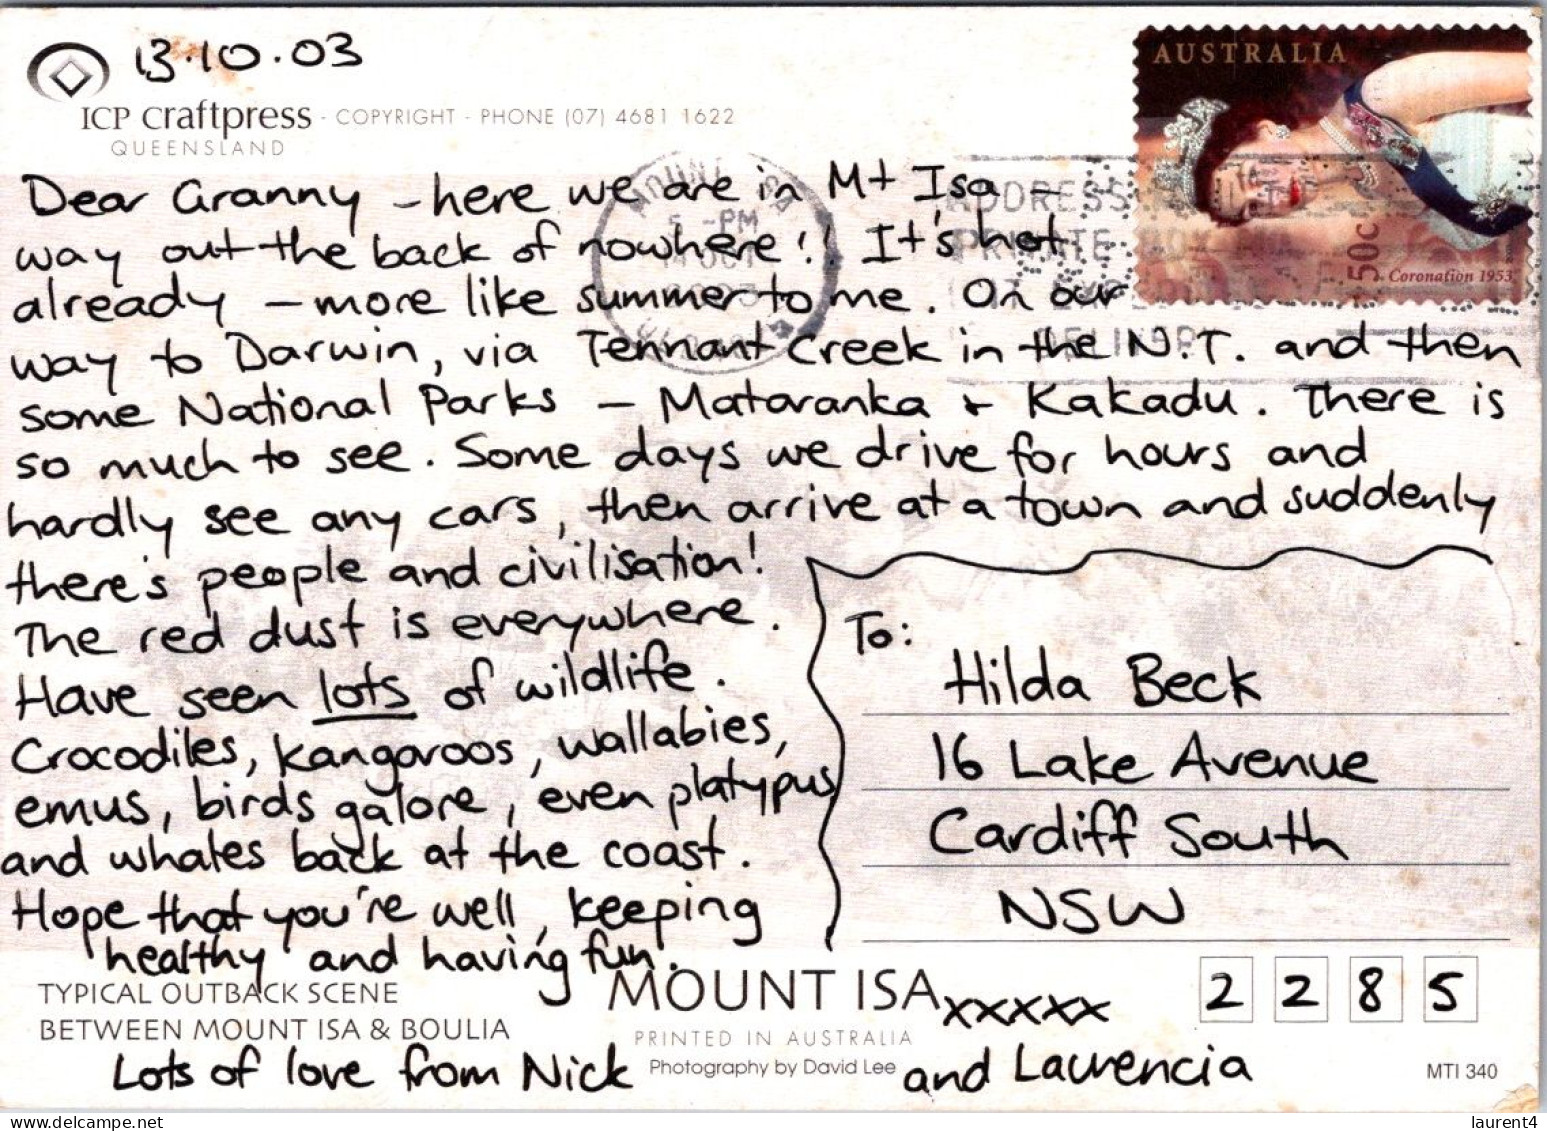 13.10.03
ICP craftpress - COPYRIGHT - PHONE (07) 4681 1622
QUEENSLAND
AUSTRALIA
50c
Coronation 1953
MOUNT ISA
5 -PM
14 OCT
2003
ADDRESS
PRIVATE BOX
DELIVERY
Dear Granny - here we are in Mt Isa -
way out the back of nowhere!! It's hot
already - more like summer to me. On our
way to Darwin, via Tennant Creek in the N.T. and then
some National Parks - Mataranka & Kakadu. There is
so much to see. Some days we drive for hours and
hardly see any cars, then arrive at a town and suddenly
there's people and civilisation!
The red dust is everywhere.
Have seen lots of wildlife.
Crocodiles, kangaroos, wallabies,
emus, birds galore, even platypus
and whales back at the coast.
Hope that you're well, keeping
healthy and having fun.
xxxxx
Lots of love from Nick and Laurencia
To:
Hilda Beck
16 Lake Avenue
Cardiff South
NSW
2285
TYPICAL OUTBACK SCENE
BETWEEN MOUNT ISA & BOULIA
MOUNT ISA
PRINTED IN AUSTRALIA
Photography by David Lee
MTI 340
www.delcampe.net
laurent4